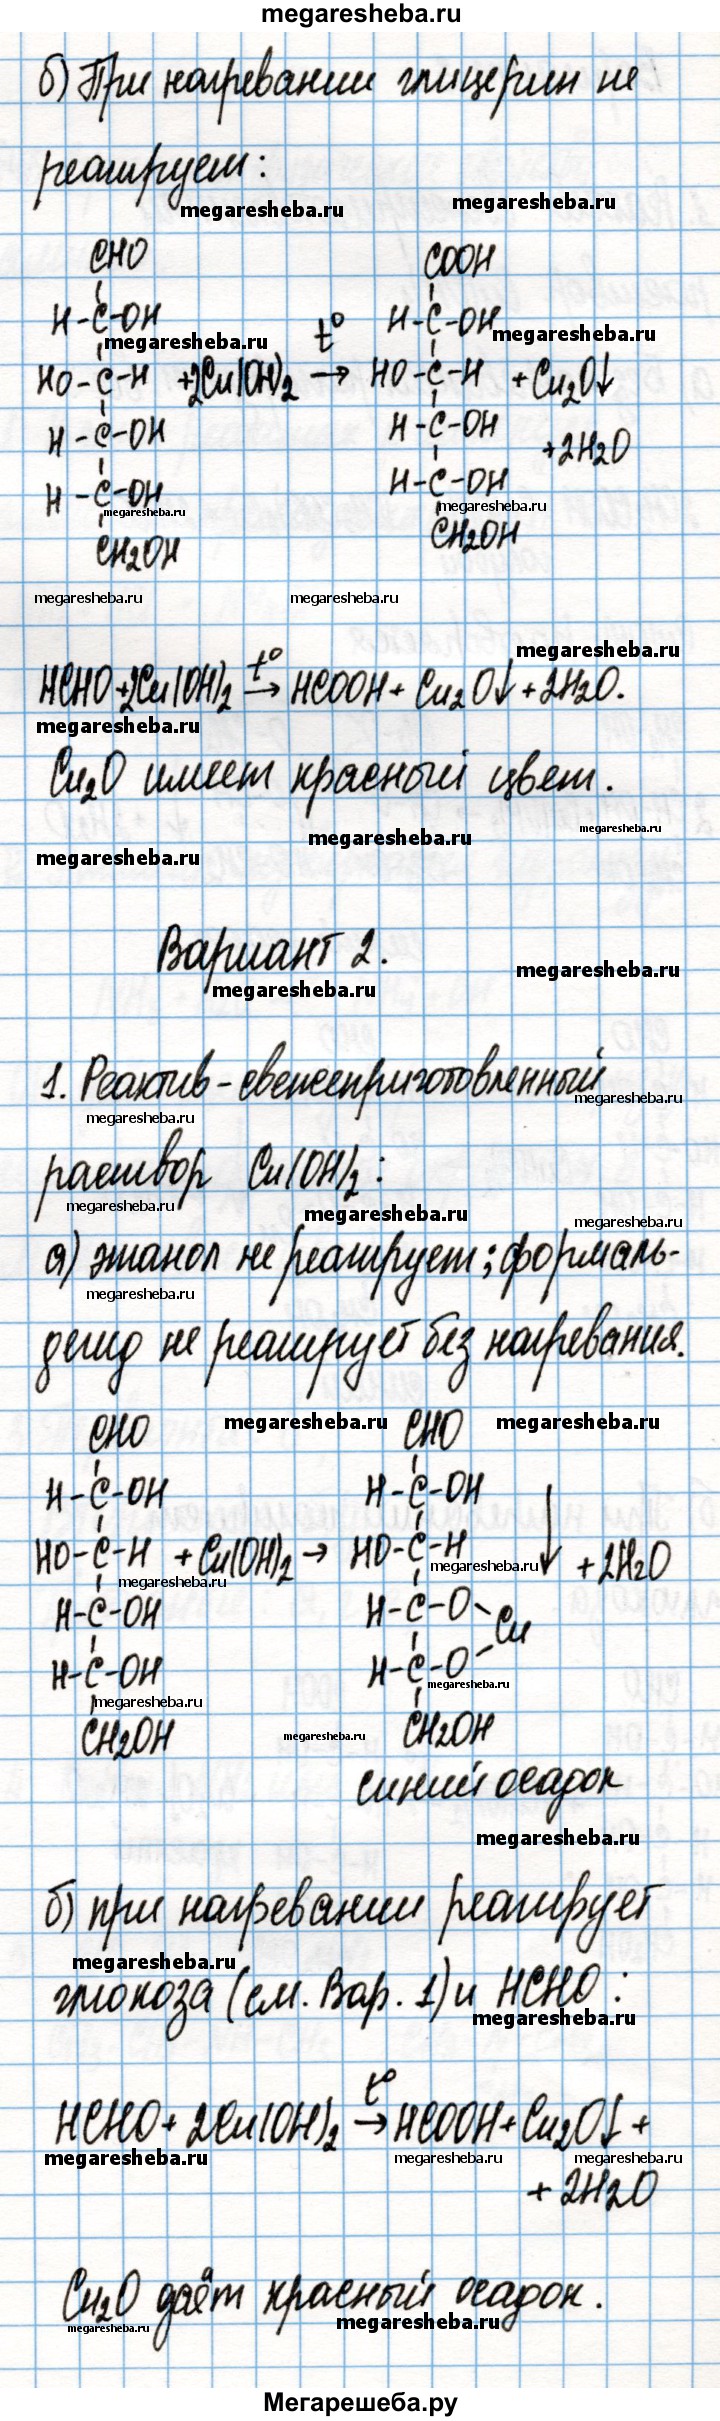 megaresheba.ru
б) При нагревании глицерин не
реагирует:
megaresheba.ru megaresheba.ru
CHO COOH
H-C-OH H-C-OH
megaresheba.ru t° megaresheba.ru
HO-C-H +2Cu(OH)2 → HO-C-H +Cu2O↓
H-C-OH H-C-OH +2H2O
H-C-OH H-C-OH
megaresheba.ru megaresheba.ru
CH2OH CH2OH
megaresheba.ru megaresheba.ru
megaresheba.ru
HCHO+2Cu(OH)2 t°→ HCOOH+Cu2O↓+2H2O.
megaresheba.ru
Cu2O имеет красный цвет.
megaresheba.ru megaresheba.ru
megaresheba.ru
Вариант 2.
megaresheba.ru
megaresheba.ru
1. Реактив-свежеприготовленный
megaresheba.ru
megaresheba.ru
раствор Cu(OH)2:
megaresheba.ru megaresheba.ru
megaresheba.ru
а) этанол не реагирует; формаль-
megaresheba.ru
дегид не реагирует без нагревания.
megaresheba.ru megaresheba.ru
CHO CHO
H-C-OH H-C-OH ↓
HO-C-H +Cu(OH)2 → HO-C-H +2H2O
megaresheba.ru megaresheba.ru
H-C-OH H-C-O Cu
H-C-OH H-C-O
megaresheba.ru megaresheba.ru
CH2OH megaresheba.ru CH2OH
синий осадок
megaresheba.ru
б) при нагревании реагирует
megaresheba.ru
глюкоза (см. Вар. 1) и HCHO:
megaresheba.ru
HCHO+2Cu(OH)2 t°→ HCOOH+Cu2O↓+
megaresheba.ru megaresheba.ru megaresheba.ru
+2H2O
Cu2O даёт красный осадок.
megaresheba.ru megaresheba.ru
Мегарешеба.ру